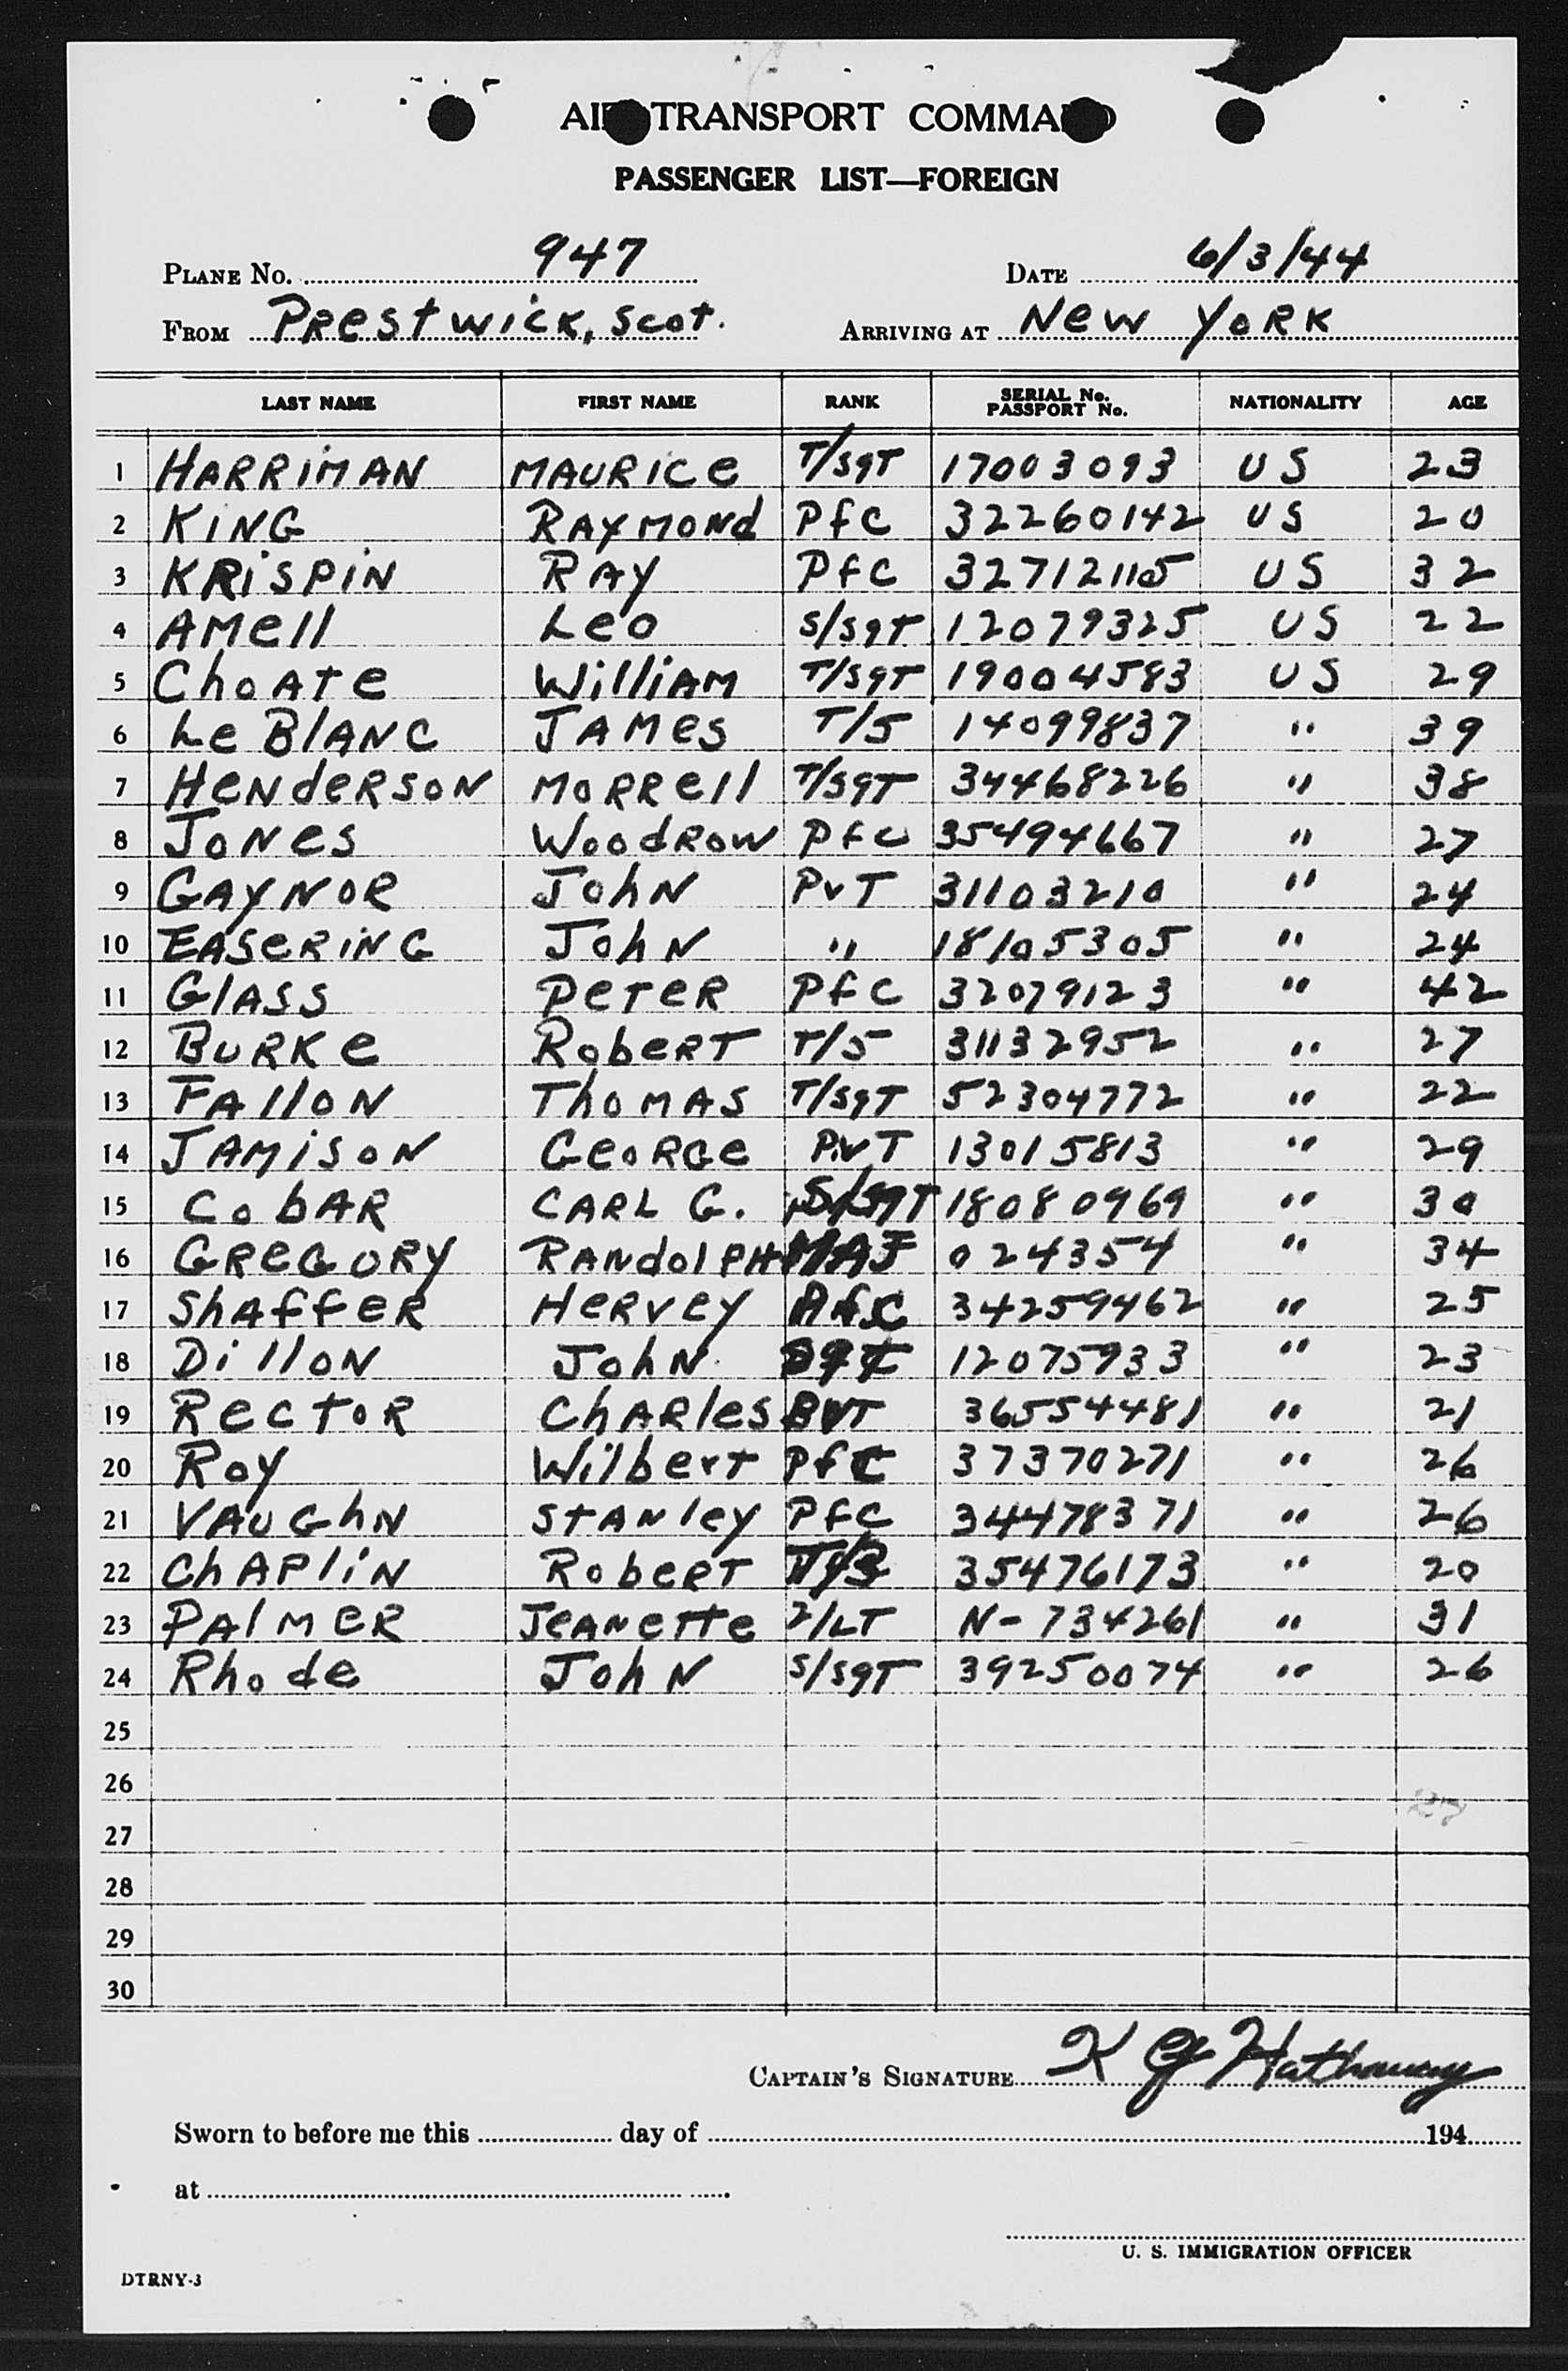 AIR TRANSPORT COMMAND
PASSENGER LIST—FOREIGN
PLANE NO. 947 DATE 6/3/44
FROM Prestwick, Scot. ARRIVING AT New York
LAST NAME FIRST NAME RANK SERIAL No. PASSPORT No. NATIONALITY AGE
1 HARRIMAN MAURICe T/SgT 17003093 US 23
2 KING RAYMONd Pfc 32260142 US 20
3 KRiSPiN RAY Pfc 32712115 US 32
4 AMell Leo S/SgT 12079325 US 22
5 ChoATe WilliAM T/SgT 19004583 US 29
6 Le BlANC JAMes T/5 14099837 " 39
7 HeNdeRSoN MoRRell T/SgT 34468226 " 38
8 JoNes WoodRow Pfc 35494667 " 27
9 GAYNOR JohN PvT 31103210 " 24
10 EASeRiNG JohN " 18105305 " 24
11 GlASS PeTeR Pfc 32079123 " 42
12 BURKe RobeRT T/5 31132952 " 27
13 FAlloN ThoMAS T/SgT 52304772 " 22
14 JAMiSoN GeoRGe PvT 13015813 " 29
15 CobAR CARL G. S/SgT 18080969 " 30
16 GReGORY RANdolPH MAJ 024354 " 34
17 ShAffeR HeRvey Pfc 34259462 " 25
18 DilloN JohN Sgt 12075933 " 23
19 RecToR ChARles PVT 36554481 " 21
20 Roy Wilbert Pfc 37370271 " 26
21 VAUGhN STANley Pfc 34478371 " 26
22 ChAPliN RobeRT 35476173 " 20
23 PAlMeR JeANeTTe 2/LT N-734261 " 31
24 Rhode JohN S/SgT 39250074 " 26
25
26
27
28
29
30
CAPTAIN'S SIGNATURE K G Hathaway
Sworn to before me this day of 194
at
U. S. IMMIGRATION OFFICER
DTRNY-3